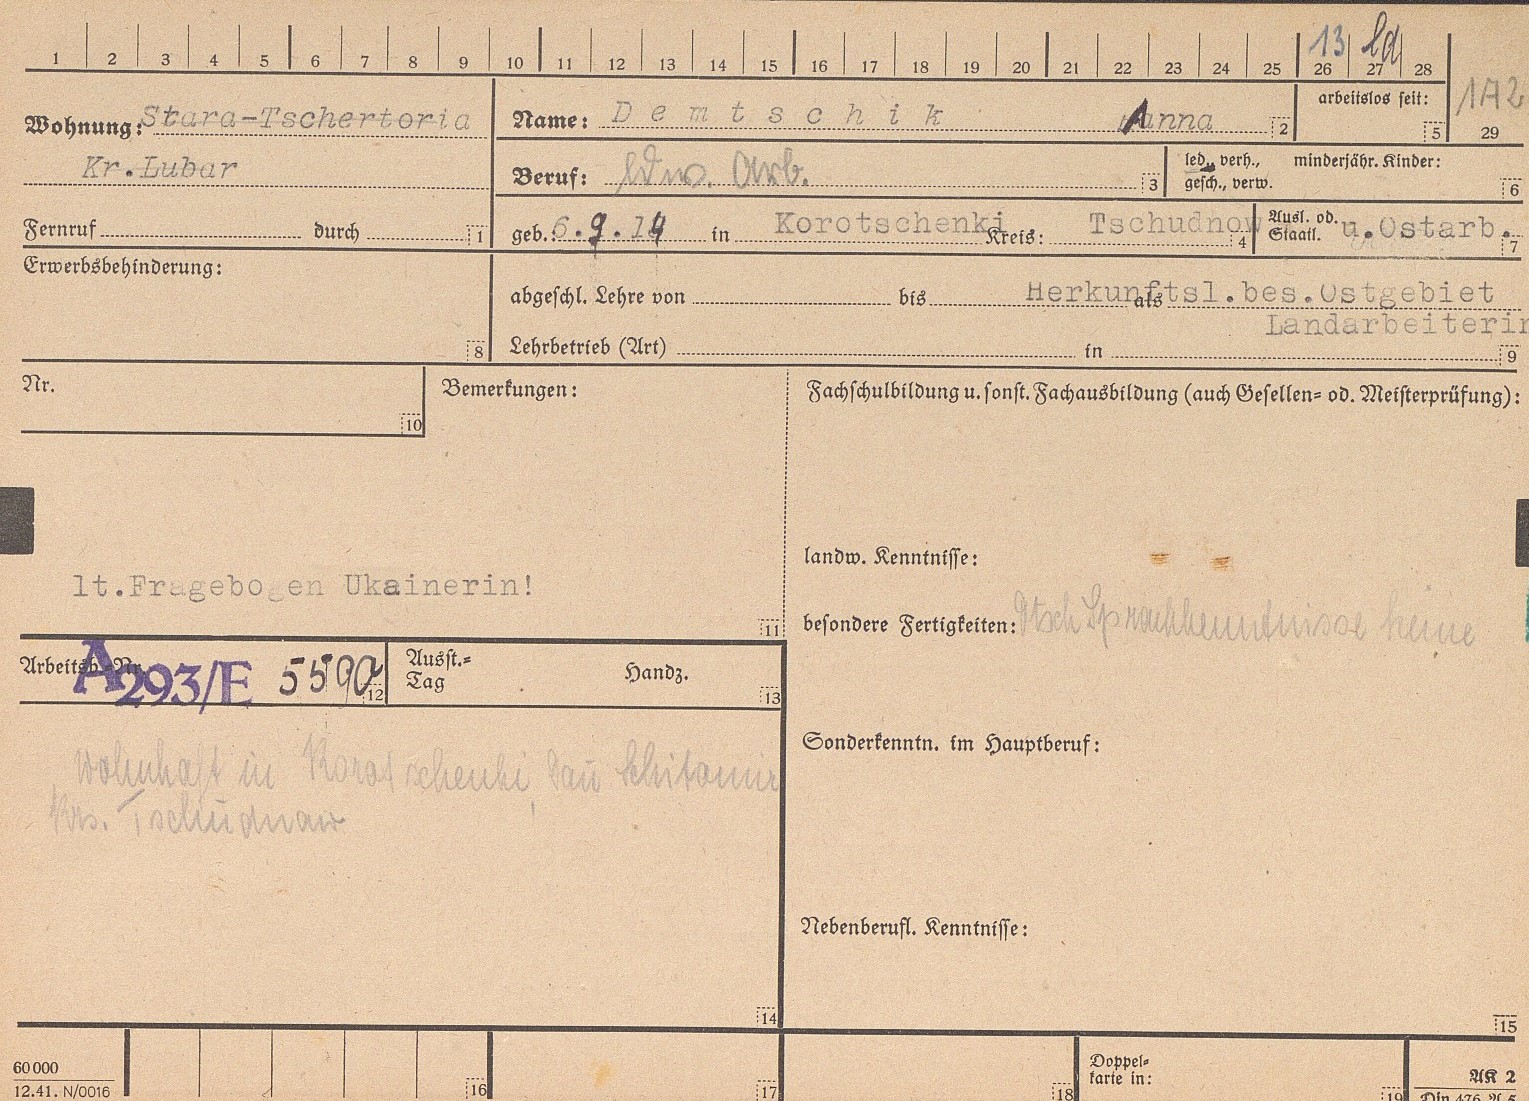 1 2 3 4 5 6 7 8 9 10 11 12 13 14 15 16 17 18 19 20 21 22 23 24 25 26 27 28
13 ld
Wohnung: Stara-Tschertoria
Kr.Lubar
Name: Demtschik Anna 2
arbeitslos seit: 5
1A2
29
Beruf: ldw. Arb. 3
led., verh., gesch., verw.
minderjähr. Kinder: 6
Fernruf durch 1
geb.: 6.9.14 in Korotschenki Kreis: Tschudnow 4
Ausl. od. Staatl. u.Ostarb. 7
Erwerbsbehinderung: 8
abgeschl. Lehre von bis als Herkunftsl.bes.Ostgebiet
Landarbeiterin
Lehrbetrieb (Art) in 9
Nr. 10
Bemerkungen:
lt.Fragebogen Ukainerin!
11
Fachschulbildung u. sonst. Fachausbildung (auch Gesellen= od. Meisterprüfung):
landw. Kenntnisse:
besondere Fertigkeiten: Dtsch Sprachkenntnisse keine
Arbeitsb.-Nr. A 293/E 5590 12
Ausst.=
Tag
Handz. 13
wohnhaft in Korotschenki, Gau Schitomir
Krs. Tschudnow
14
Sonderkenntn. im Hauptberuf:
Nebenberufl. Kenntnisse:
15
60 000
12.41. N/0016
16
17
18
Doppel=
karte in:
19
AK 2
Din 476 A 5